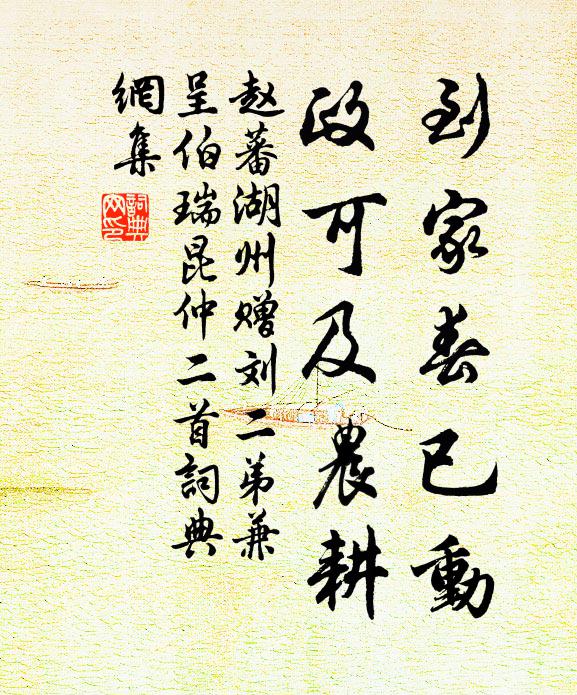 到家春已動
政可及農耕
赵蕃湖州赠刘二弟兼
呈伯瑞昆仲二首詞典
網集
詞典
网印